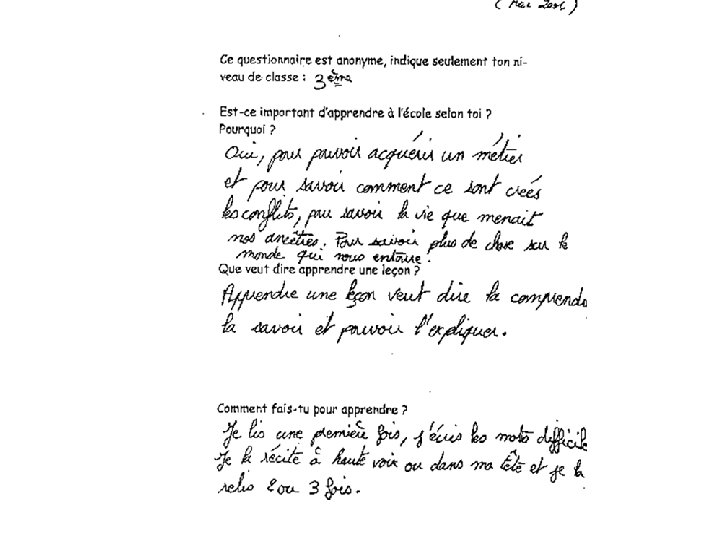 ( Mai 200 )
Ce questionnaire est anonyme, indique seulement ton ni-
veau de classe : 3ème
Est-ce important d'apprendre à l'école selon toi ?
Pourquoi ?
Oui, pour pouvoir acquérir un métier
et pour savoir comment ce sont créés
les conflits, pour savoir la vie que menait
nos ancêtres. Pour savoir plus de chose sur le
monde qui nous entoure.
Que veut dire apprendre une leçon ?
Apprendre une leçon veut dire la comprendre
la savoir et pouvoir l'expliquer.
Comment fais-tu pour apprendre ?
Je lis une première fois, j'écris les mots difficile
Je la récite à haute voix ou dans ma tête et je la
relis 2 ou 3 fois.